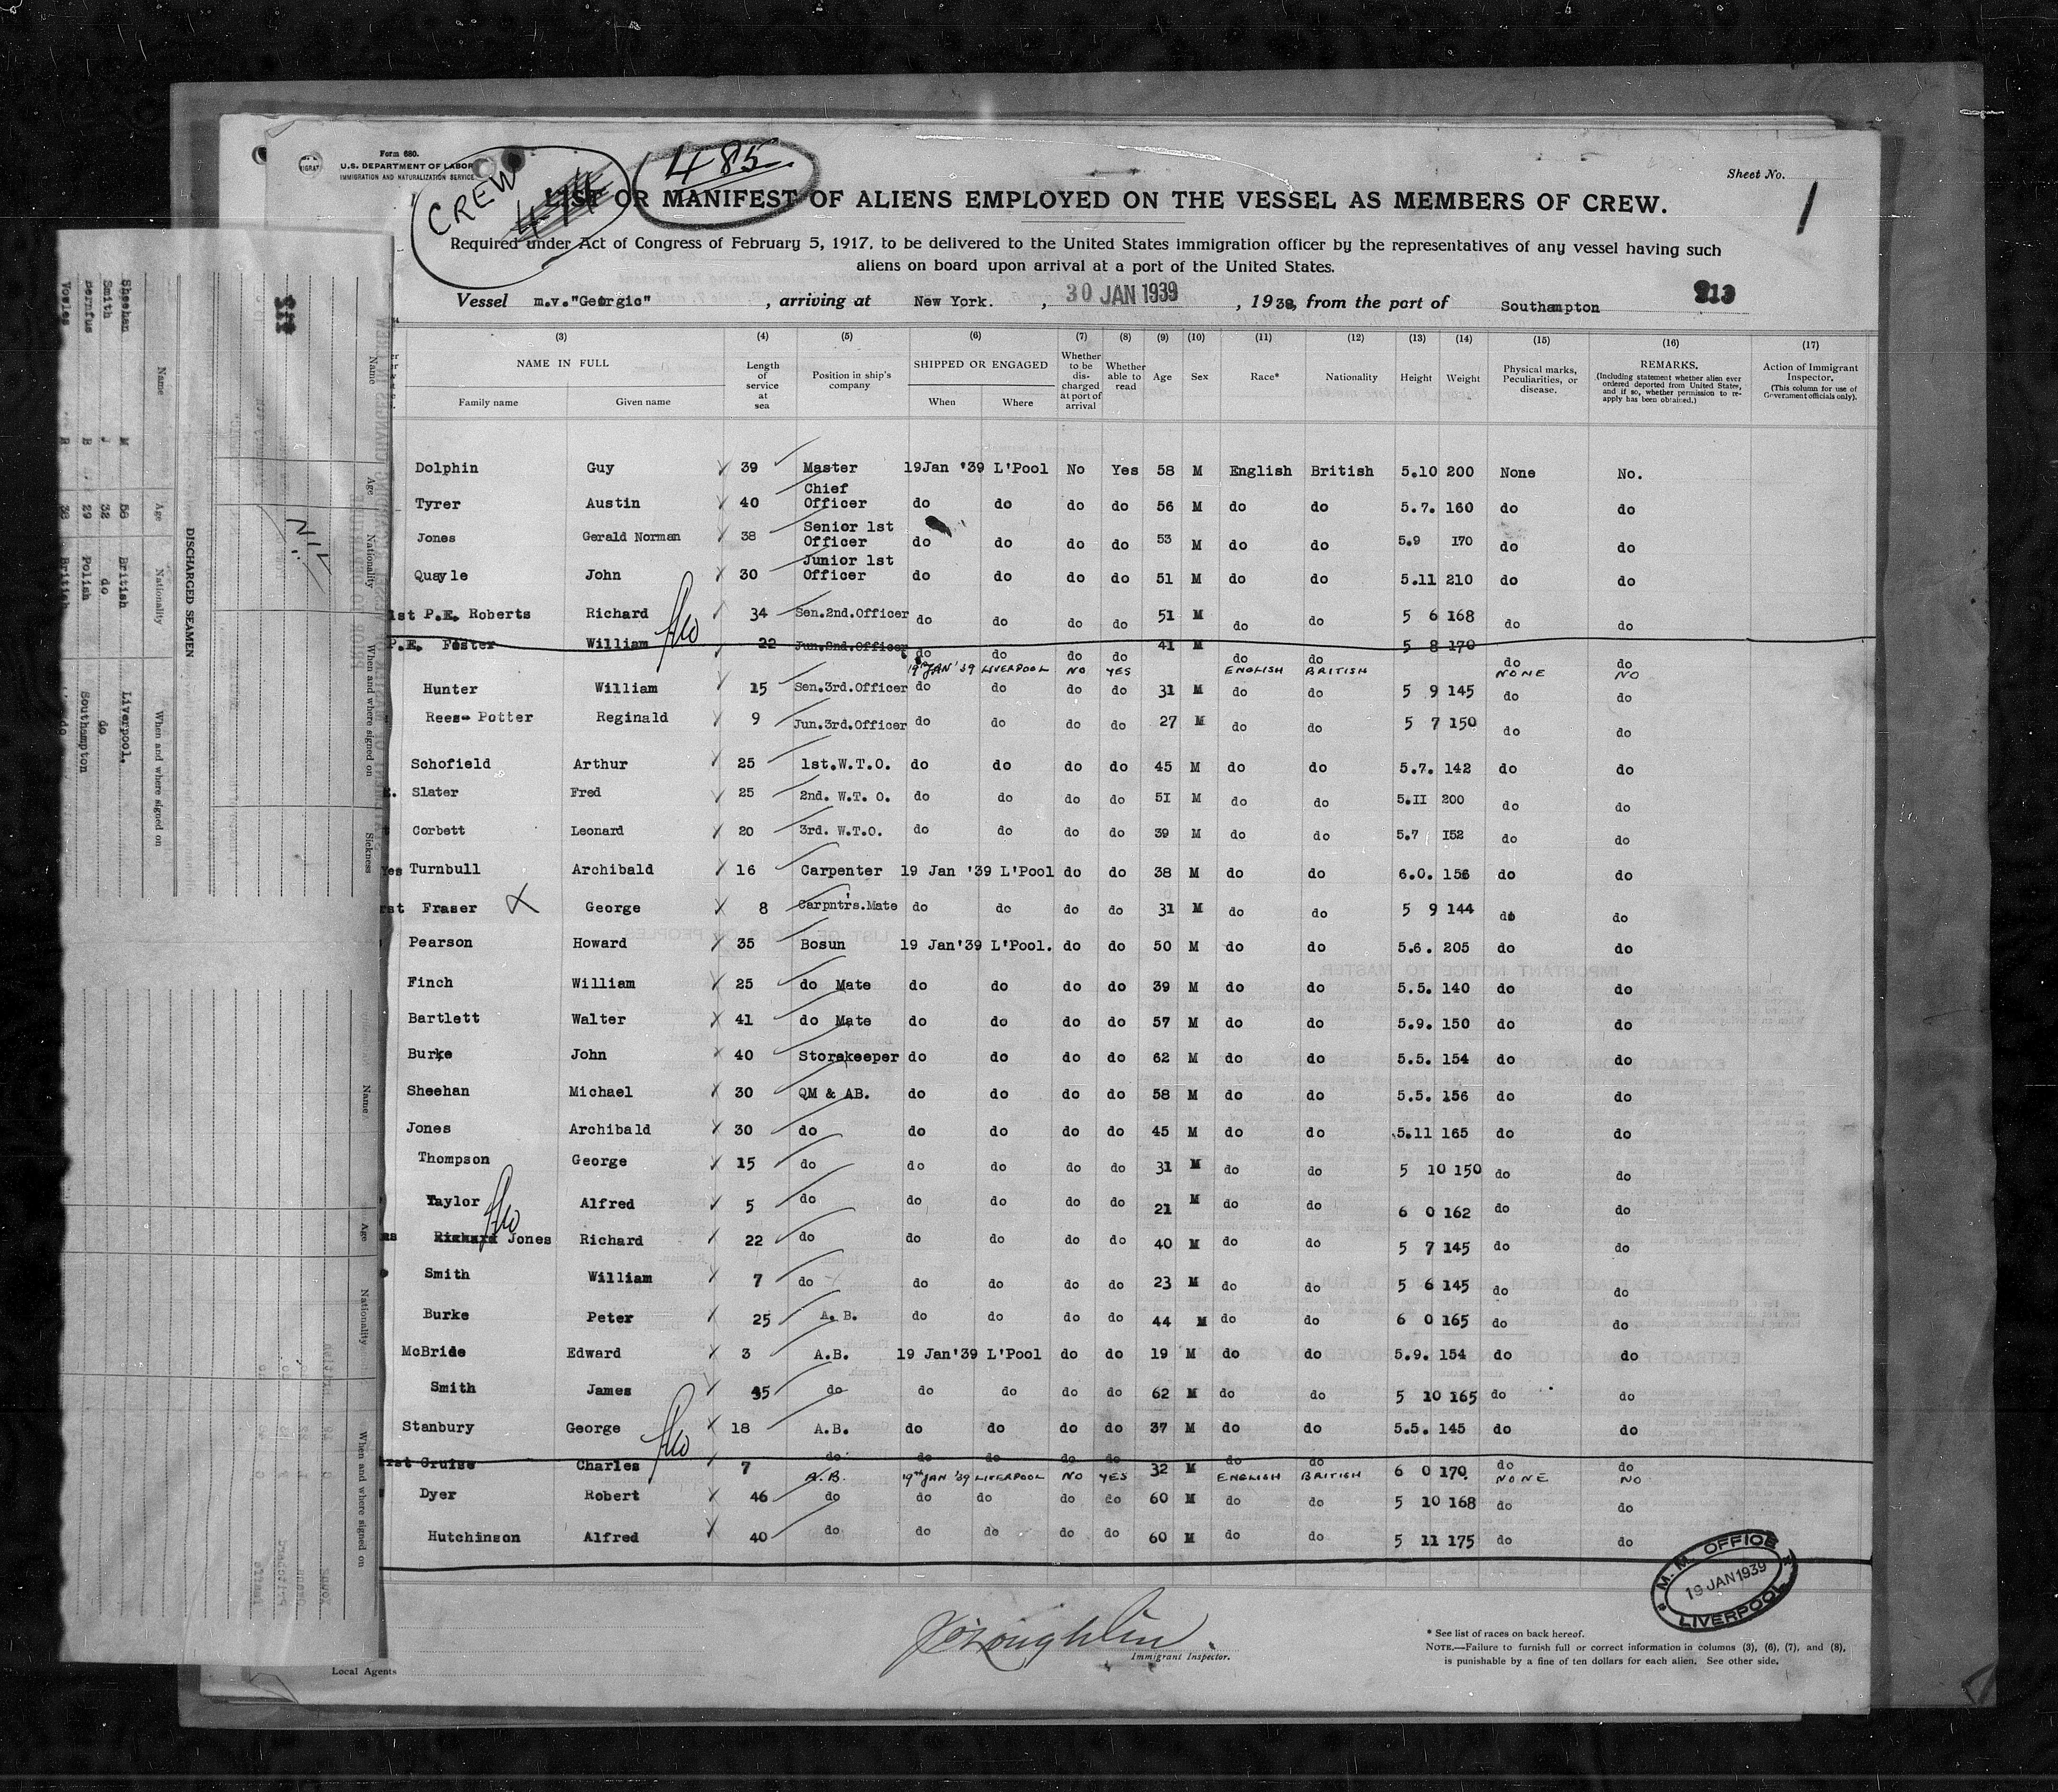 Form 680.
U.S. DEPARTMENT OF LABOR
IMMIGRATION AND NATURALIZATION SERVICE
CREW
485
Sheet No.
1
LIST OR MANIFEST OF ALIENS EMPLOYED ON THE VESSEL AS MEMBERS OF CREW.
Required under Act of Congress of February 5, 1917, to be delivered to the United States immigration officer by the representatives of any vessel having such
aliens on board upon arrival at a port of the United States.
Vessel m.v."Georgic", arriving at New York., 30 JAN 1939, 1939, from the port of Southampton
213
(3) (4) (5) (6) (7) (8) (9) (10) (11) (12) (13) (14) (15) (16) (17)
NAME IN FULL
Family name Given name
Length of service at sea
Position in ship's company
SHIPPED OR ENGAGED
When Where
Whether to be discharged at port of arrival
Whether able to read
Age Sex Race* Nationality Height Weight
Physical marks, Peculiarities, or disease.
REMARKS.
(Including statement whether alien ever ordered deported from United States, and if so, whether permission to re-apply has been obtained.)
Action of Immigrant Inspector.
(This column for use of Government officials only).
Dolphin Guy 39 Master 19Jan '39 L'Pool No Yes 58 M English British 5.10 200 None No.
Tyrer Austin 40 Chief Officer do do do do 56 M do do 5.7. 160 do do
Jones Gerald Norman 38 Senior 1st Officer do do do do 53 M do do 5.9 170 do do
Quayle John 30 Junior 1st Officer do do do do 51 M do do 5.11 210 do do
1st P.E. Roberts Richard 34 Sen.2nd.Officer do do do do 51 M do do 5 6 168 do do
P.E. Foster William 22 Jun.2nd.Officer do do do do 41 M do do 5 8 170 do do
19th JAN '39 LIVERPOOL NO YES ENGLISH BRITISH NONE NO
Hunter William 15 Sen.3rd.Officer do do do do 31 M do do 5 9 145 do do
Rees- Potter Reginald 9 Jun.3rd.Officer do do do do 27 M do do 5 7 150 do do
Schofield Arthur 25 1st.W.T.O. do do do do 45 M do do 5.7. 142 do do
Slater Fred 25 2nd. W.T. O. do do do do 5I M do do 5.II 200 do do
Corbett Leonard 20 3rd. W.T.O. do do do do 39 M do do 5.7 I52 do do
Yes Turnbull Archibald 16 Carpenter 19 Jan '39 L'Pool do do 38 M do do 6.0. 156 do do
rst Fraser George 8 Carpntrs.Mate do do do do 31 M do do 5 9 144 do do
Pearson Howard 35 Bosun 19 Jan'39 L'Pool. do do 50 M do do 5.6. 205 do do
Finch William 25 do Mate do do do do 39 M do do 5.5. 140 do do
Bartlett Walter 41 do Mate do do do do 57 M do do 5.9. 150 do do
Burke John 40 Storekeeper do do do do 62 M do do 5.5. 154 do do
Sheehan Michael 30 QM & AB. do do do do 58 M do do 5.5. 156 do do
Jones Archibald 30 do do do do do 45 M do do 5.11 165 do do
Thompson George 15 do do do do do 31 M do do 5 10 150 do do
Taylor Alfred 5 do do do do do 21 M do do 6 0 162 do do
Jones Richard 22 do do do do do 40 M do do 5 7 145 do do
Smith William 7 do do do do do 23 M do do 5 6 145 do do
Burke Peter 25 A. B. do do do do 44 M do do 6 0 165 do do
McBride Edward 3 A.B. 19 Jan'39 L'Pool do do 19 M do do 5.9. 154 do do
Smith James 45 do do do do do 62 M do do 5 10 165 do do
Stanbury George 18 A.B. do do do do 37 M do do 5.5. 145 do do
rst Cruise Charles 7 do do do do do 32 M do do 6 0 170 do do
A.B. 19th JAN '39 LIVERPOOL NO YES ENGLISH BRITISH NONE NO
Dyer Robert 46 do do do do do 60 M do do 5 10 168 do do
Hutchinson Alfred 40 do do do do do 60 M do do 5 11 175 do do
M.M. OFFICE
19 JAN 1939
LIVERPOOL
Immigrant Inspector.
* See list of races on back hereof.
NOTE.—Failure to furnish full or correct information in columns (3), (6), (7), and (8),
is punishable by a fine of ten dollars for each alien. See other side.
Local Agents
DISCHARGED SEAMEN
Name Age Nationality When and where signed on
Sheehan M 58 British Liverpool.
Smith J 32 do do
B 29 Polish Southampton
Vowles R 38 British do
Name Age Nationality When and where signed on Sickness
NIL
Name Age Nationality When and where signed on